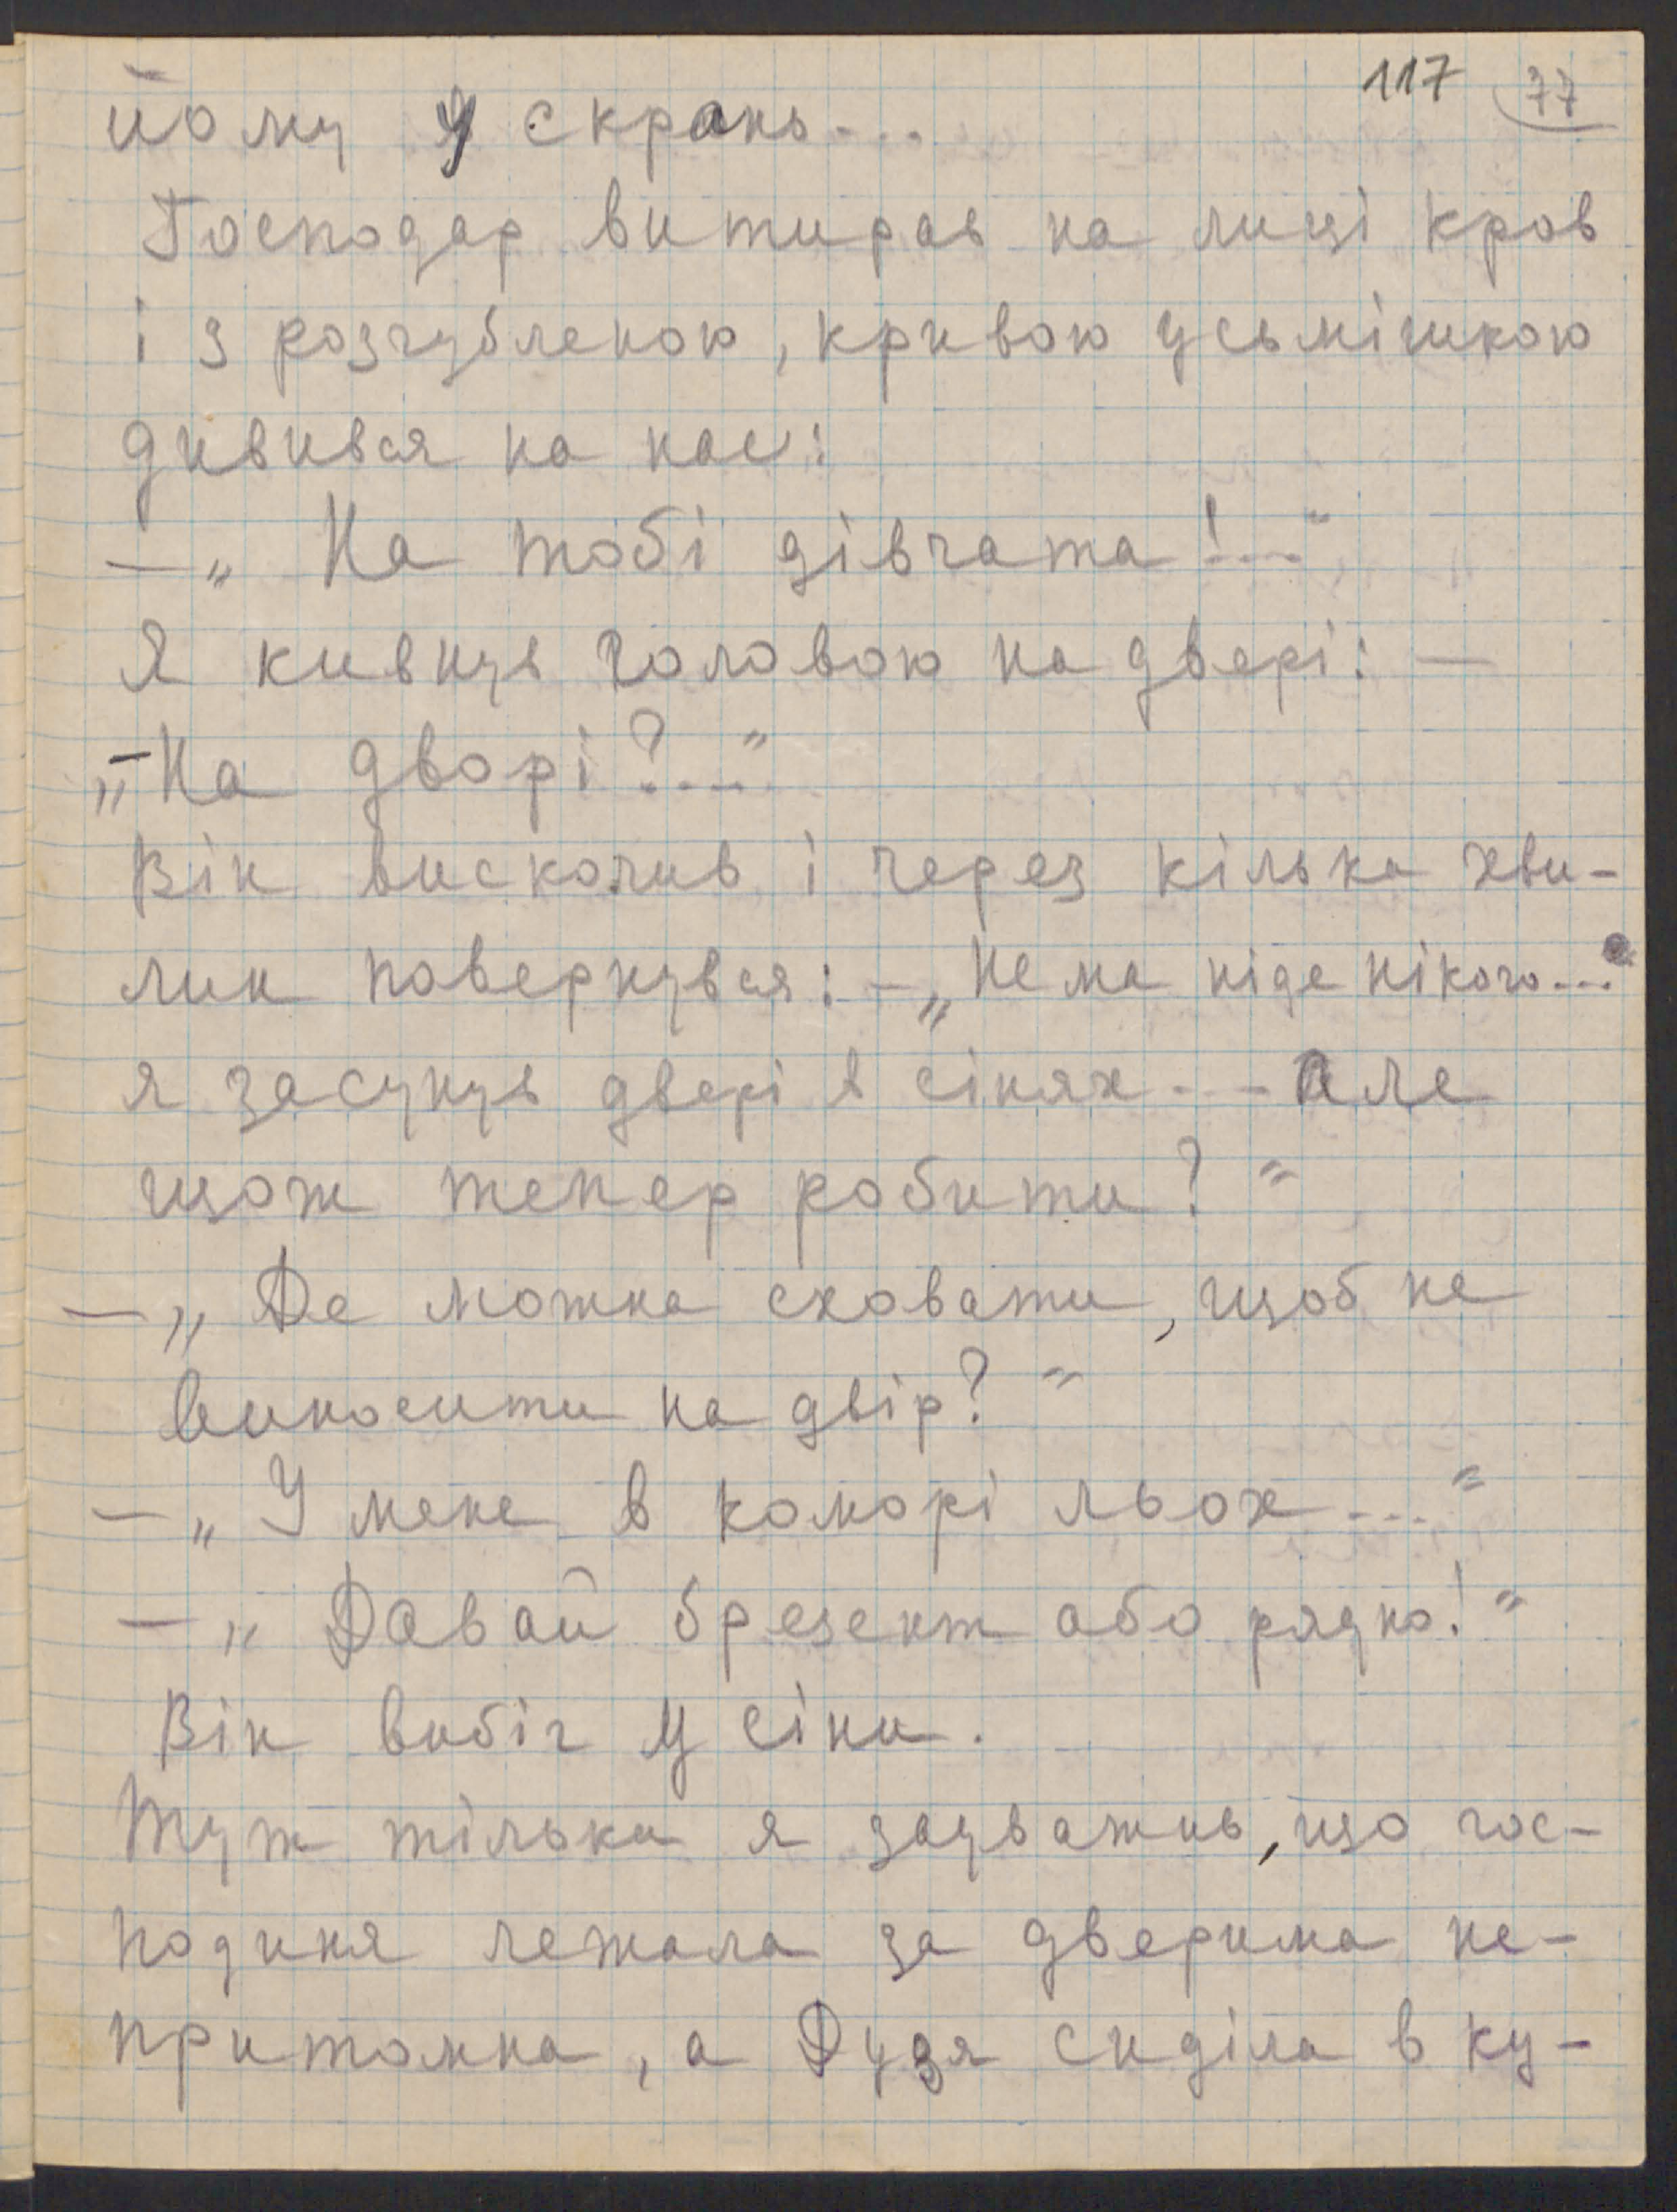 117 77
йому у скрань...
Господар витирав на лиці кров
і з розгубленою, кривою усьмішкою
дивився на нас:
— „На тобі дівчата!..."
Я кивнув головою на двері: —
„—На дворі?..."
Він вискочив і через кілька хви-
лин повернувся: — „Нема ніде нікого..."
я засунув двері в сінях... Але
щож тепер робити?"
— „Де можна сховати, щоб не
виносити на двір?"
— „У мене в коморі льох..."
— „Давай брезент або рядно!"
Він вибіг у сіни.
Тут тільки я зауважив, що гос-
подиня лежала за дверима не-
притомна, а Дузя сиділа в ку-